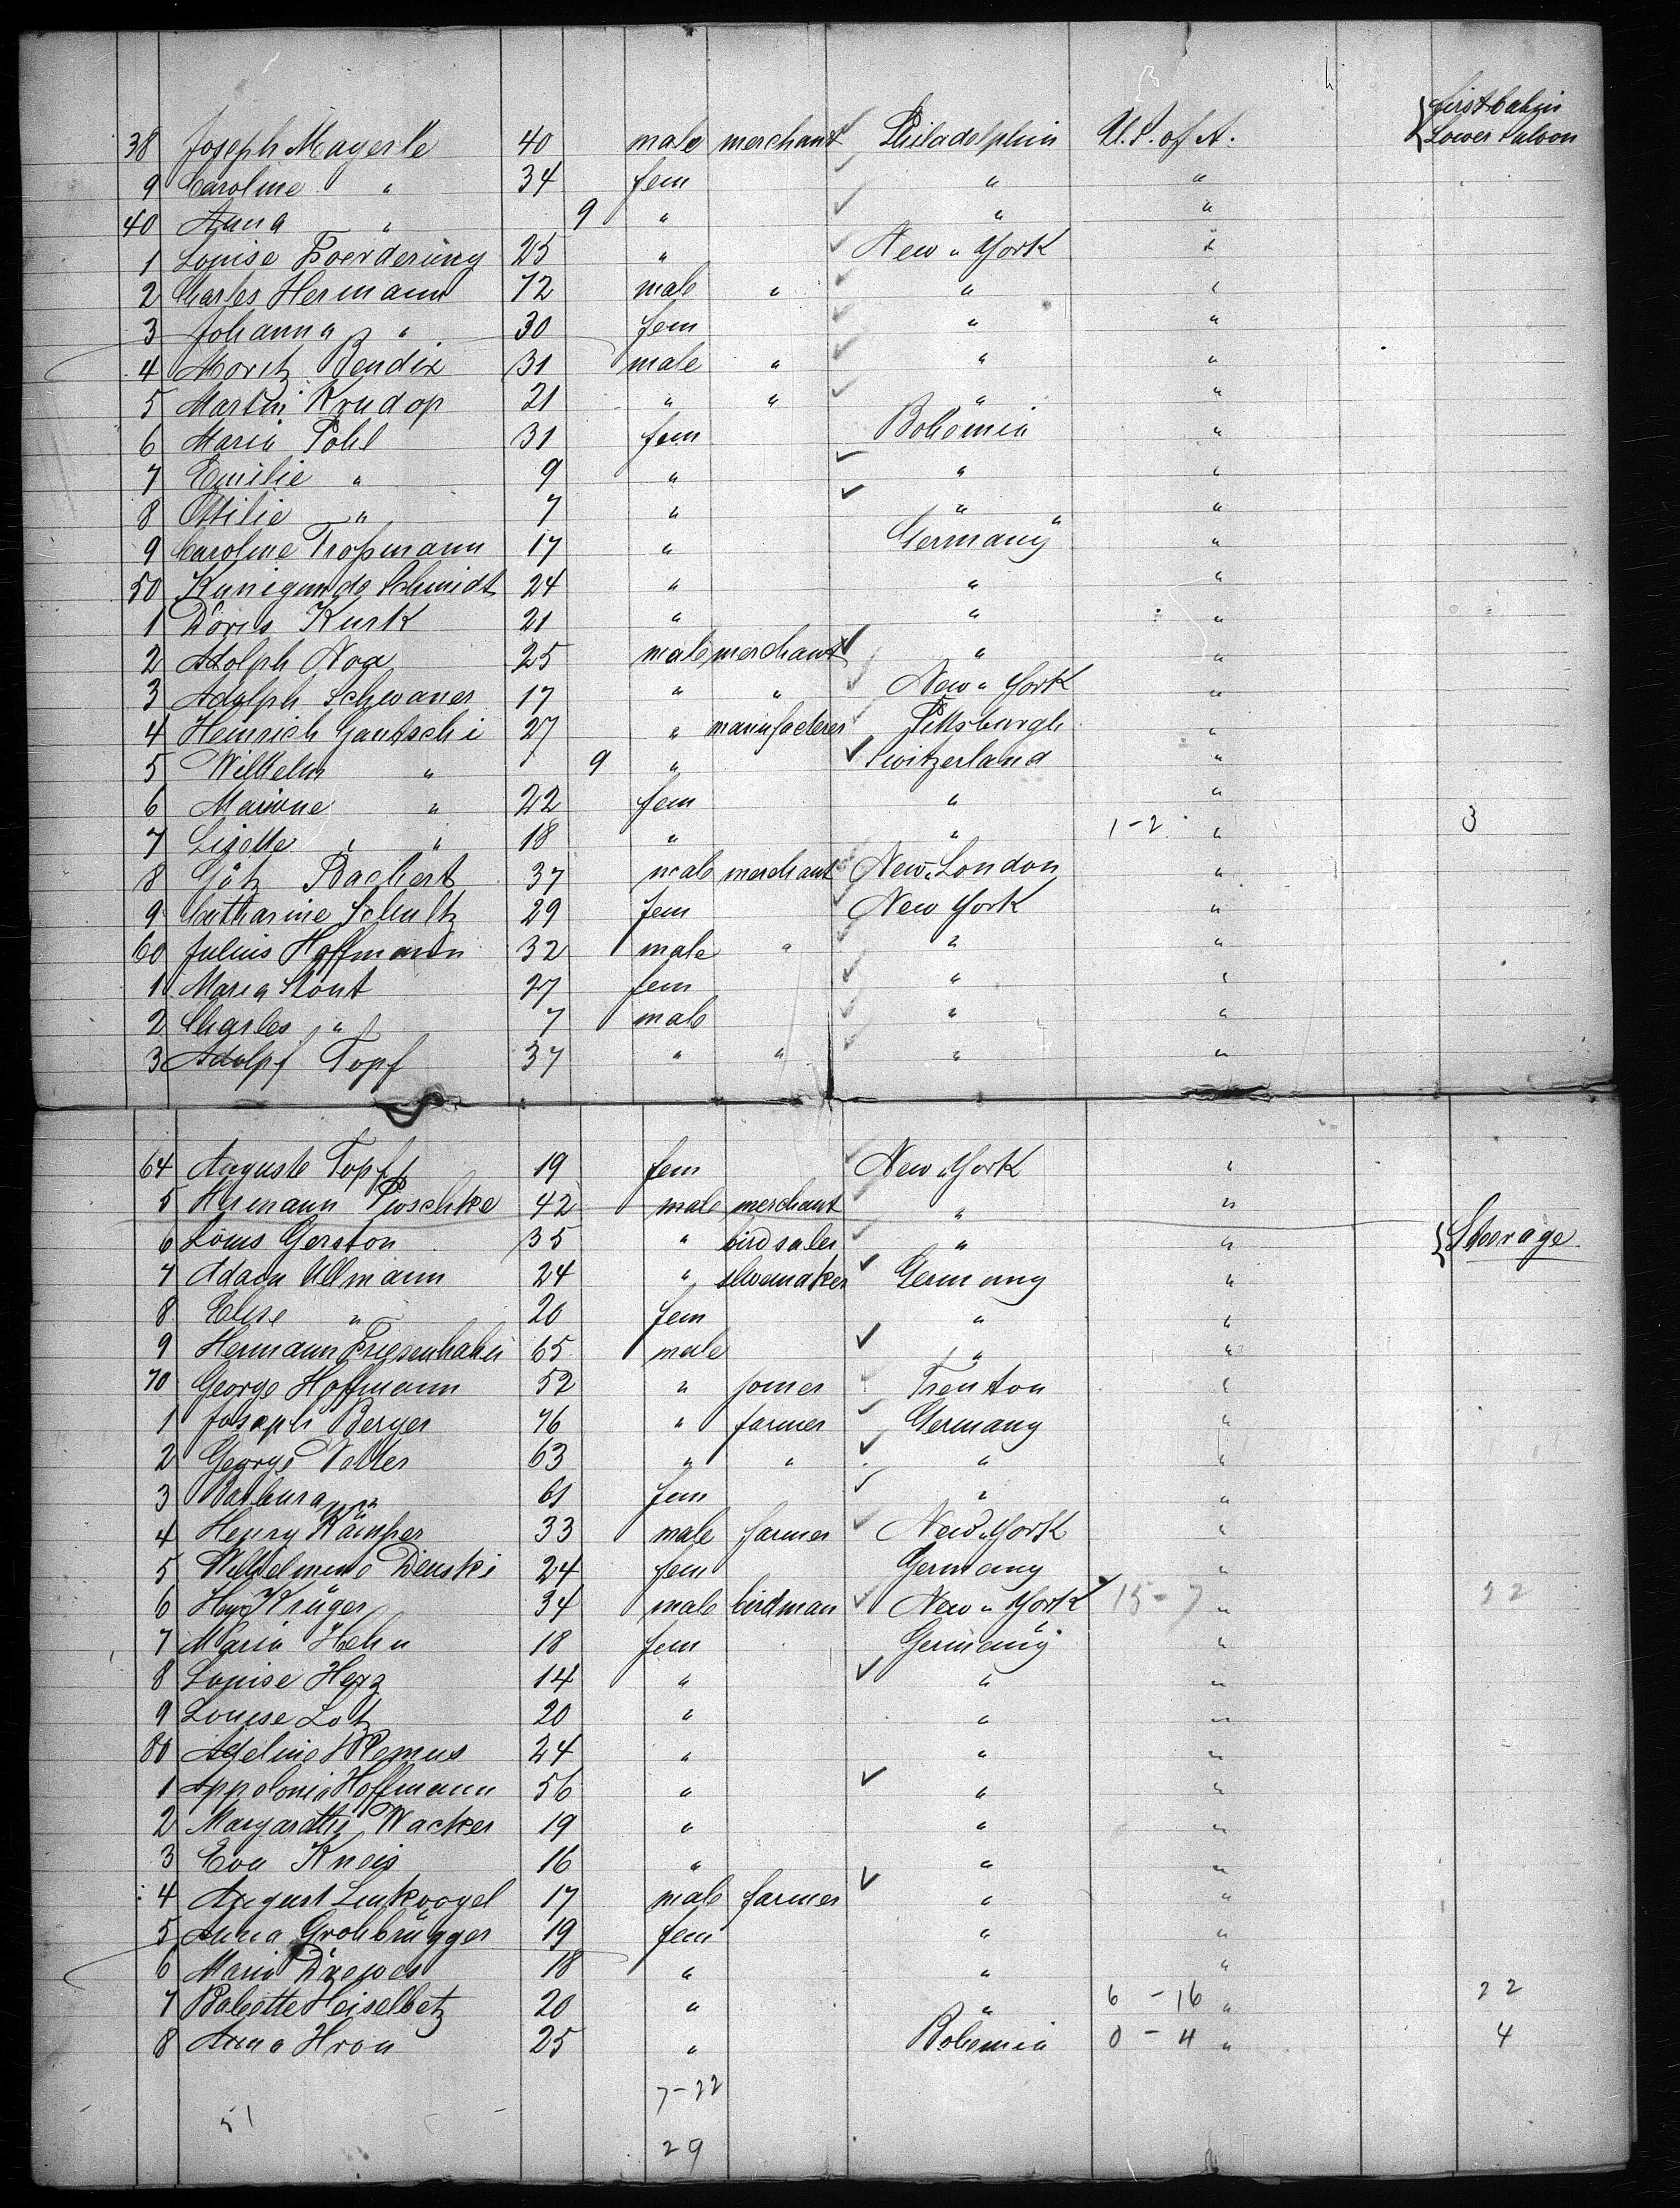 first Cabin
38 Joseph Mayerle 40 male merchant Philadelphia U.S. of A. Lower Saloon
9 Caroline " 34 fem " "
40 Anna " 9 " " "
1 Louise Foerderung 25 " New-York "
2 Charles Hermann 72 male " " "
3 Johanna " 30 fem " "
4 Moritz Bendix 31 male " " "
5 Martin Krudop 21 " " " "
6 Maria Pohl 31 fem Bohemia "
7 Emilie " 9 " " "
8 Ottilie " 7 " " "
9 Caroline Troßmann 17 " Germany "
50 Kunigunde Schmidt 24 " " "
1 Dores Kurk 21 " " "
2 Adolph Nox 25 male merchant " "
3 Adolph Schwaner 17 " " New-York "
4 Heinrich Gautschi 27 " manufacterer Pittsburgh "
5 Wilhelm " 9 " Switzerland "
6 Marione " 22 fem " "
7 Lisette " 18 " " 1-2 " 3
8 Götz Bachert 37 male merchant New-London "
9 Catharine Schultz 29 fem New York "
60 Julius Hoffmann 32 male " " "
1 Maria Stout 27 fem " "
2 Charles " 7 male " "
3 Adolpf Topf 37 " " " "
64 Auguste Topf 19 fem New-York "
5 Hermann Puschke 42 male merchant " "
6 Louis Gerston 35 " bird saler " " Steerage
7 Adam Ullmann 24 " shoemaker Germany "
8 Elise " 20 fem " "
9 Hermann Friesenhahn 65 male " "
70 George Hoffmann 52 " joiner Trenton "
1 Joseph Berger 76 " farmer Germany "
2 George Vatter 63 " " " "
3 Barbara " 61 fem " "
4 Henry Kämper 33 male farmer New-York "
5 Wilhelmine Denski 24 fem Germany "
6 Hry Krüger 34 male birdman New-York 15-7 " 22
7 Maria Hehn 18 fem Germany "
8 Louise Herz 14 " " "
9 Louise Lotz 20 " " "
80 Adeline Klemus 24 " " "
1 Appolonia Hoffmann 56 " " "
2 Margaretha Wacker 19 " " "
3 Eva Kneis 16 " " "
4 August Linkvogel 17 male farmer " "
5 Anna Grohbrügger 19 fem " "
6 Maria Drewes 18 " " "
7 Babette Heiselbetz 20 " " 6 - 16 " 22
8 Anna Hron 25 " Bohemia 0 - 4 " 4
7-22
51
29